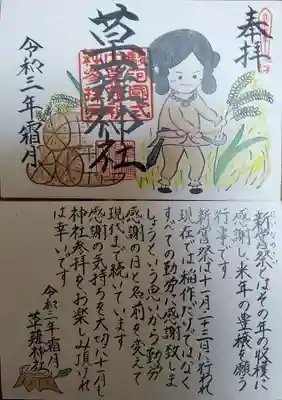 奉拝
草薙神社
令和三年霜月
新嘗祭とはその年の収穫に
感謝し来年の豊穣を願う
行事です
新嘗祭は十一月二十三日に行われ
現在では稲作だけではなく
すべての勤労に感謝致しま
しょうという思いから勤労
感謝の日と名前を変えて
現代まで続いています
感謝の気持ちを大切に十一月も
神社参拝をお楽しみ頂けれ
ば幸いです
令和三年霜月
草薙神社